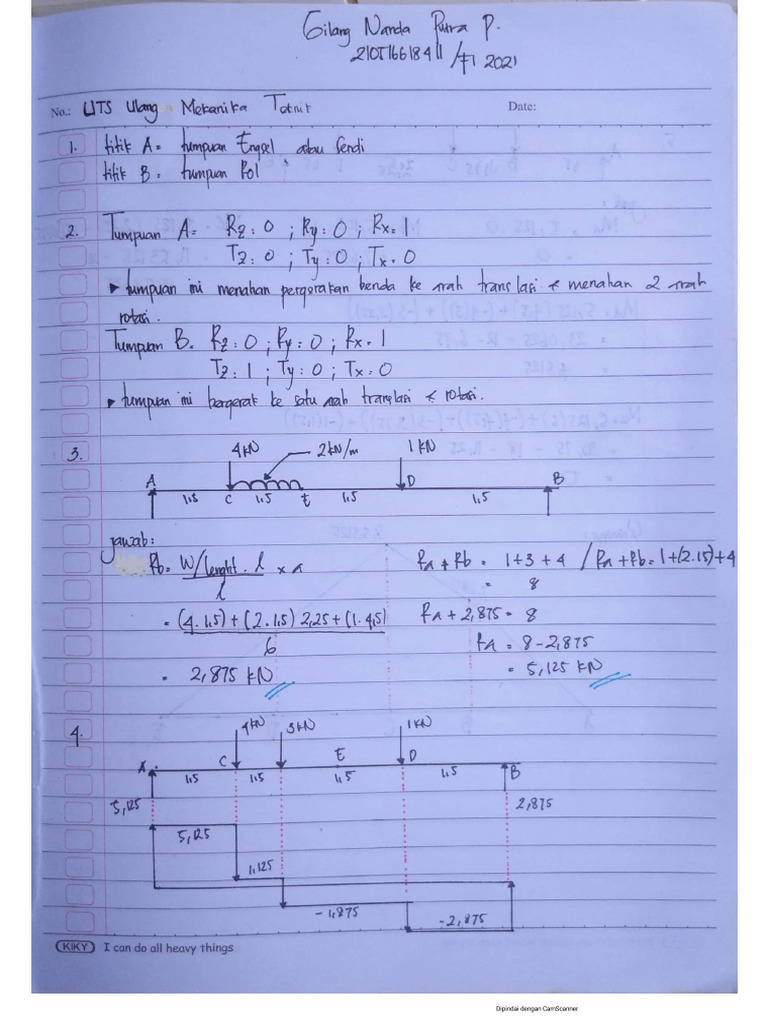 Gilang Nanda Putra P.
2105166184 11 / TI 2021
No.: UTS Ulang Mekanika Teknik Date:
1. titik A = tumpuan Engsel atau Sendi
titik B = tumpuan Rol
2. Tumpuan A = Rz = 0 ; Ry = 0 ; Rx = 1
Tz = 0 ; Ty = 0 ; Tx = 0
▸ tumpuan ini menahan pergerakan benda ke arah translasi & menahan 2 arah
rotasi.
Tumpuan B. Rz = 0 ; Ry = 0 ; Rx = 1
Tz = 1 ; Ty = 0 ; Tx = 0
▸ tumpuan ini bergerak ke satu arah translasi & rotasi.
3. 4 kN 2 kN/m 1 kN
A 1.5 C 1.5 E 1.5 D 1.5 B
jawab:
Rb = W/lenght . l / l x a
= (4. 1,5) + (2. 1.5) 2,25 + (1. 4,5) / 6
= 2,875 kN
Ra + Rb = 1 + 3 + 4 / Ra + Rb = 1 + (2. 15) + 4
= 8
Ra + 2,875 = 8
RA = 8 - 2,875
= 5,125 kN
4. 4 kN 3 kN 1 kN
A C E D B
1.5 1.5 1.5 1.5
5,125 2,875
5,125
1,125
-1,875
-2,875
KIKY I can do all heavy things
Dipindai dengan CamScanner